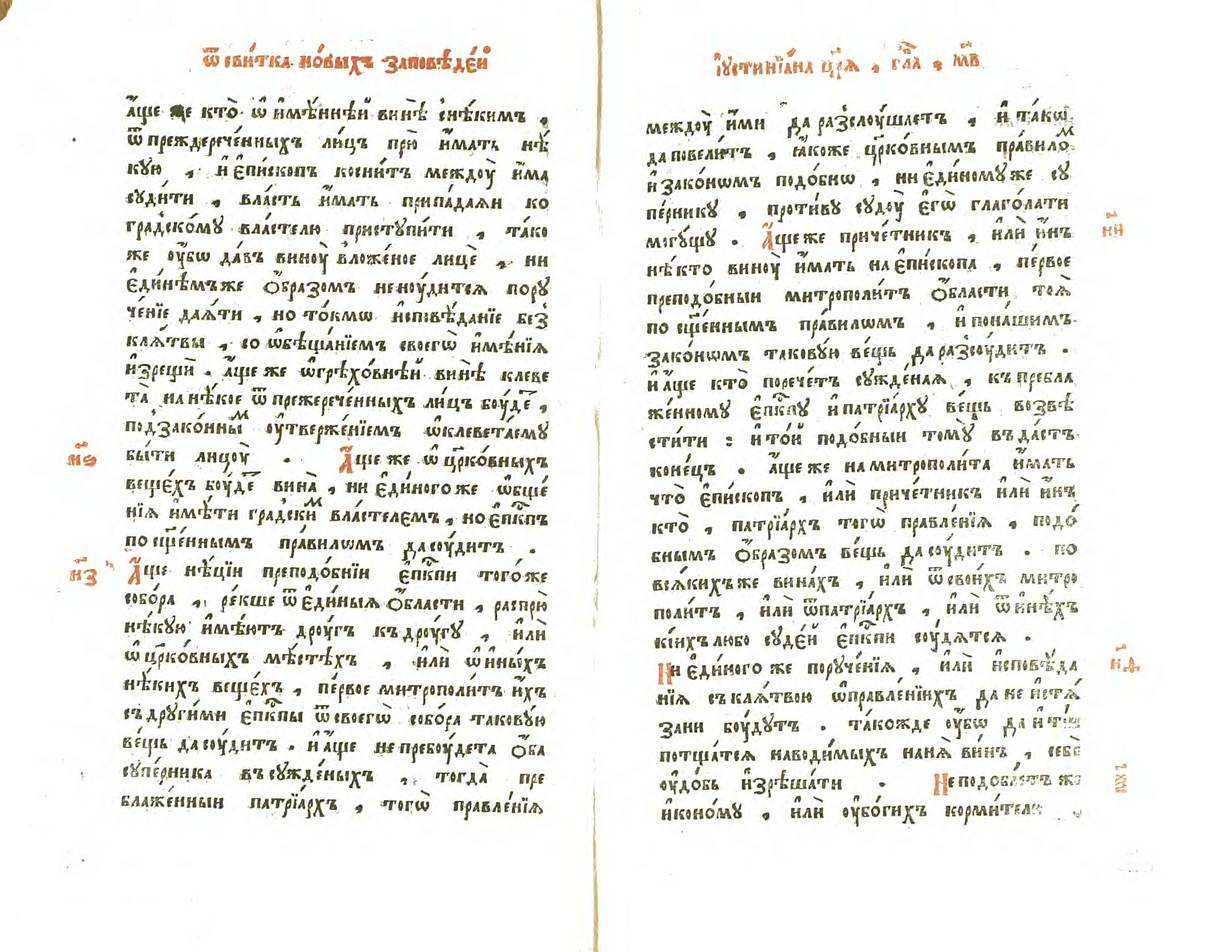 ѿ сви́тка но́выхъ заповѣде́й
а҆́ще же кто̀ ѡ҆ и҆мѣ́ннѣй винѣ̀ с̾нѣ́кимъ ,
ѿ преждерече́нныхъ лиц̾ъ прю̀ и҆́мать нѣ́
кую , и҆ Е҆пи́скопъ косни́тъ междꙋ̀ и҆́ма
сꙋди́ти , вла́сть и҆́мать припада́ѧи ко
гра́дскомꙋ вла́стелю пристꙋпи́ти , та́ко
же ᲂу҆́бѡ да́въ винꙋ̀ в̾ложе́ное лицѐ , ни
Е҆ди́нѣмъже Ѻ҆́бразомъ неноу́дитсѧ порꙋ
че́нїе даѧ́ти , но то́кмѡ и҆сповѣ́данїе без̾
клѧ́твы , со ѡ҆бѣща́нїемъ своегѡ̀ и҆мѣ́нїѧ
и҆зрещѝ . а҆́ще же ѡ҆ грѣхо́внѣй винѣ̀ клеве
та̀ на нѣ́кое ѿ прежерече́нныхъ ли́цъ боу́де ,
подзако́нныⷨ ᲂу҆твержѐнїемъ ѡ҆клевета́емꙋ
бы́ти лицоу̀ . А҆́ще же ѡ҆ цр҃ко́вныхъ
веще́хъ боу́де вина̀ , ни Е҆ди́ногоже ѡ҆бще́
нїѧ и҆мѣ́ти гра́дскиⷨ вла́стелемъ , но Е҆пⷭ҇кпъ
по сщ҃е́ннымъ пра́вилѡмъ да соу́дитъ .
А҆́ще нѣ́цїи преподо́бнїи Е҆пⷭ҇кпи того́же
собо́ра , ре́кше ѿ Е҆ди́ныѧ Ѻ҆́бласти , распрю̀
нѣ́кꙋю и҆мѣ́ютъ дроу́гъ къ дроу́гꙋ , и҆лѝ
ѡ҆ цр҃ко́вныхъ мѣ́стѣхъ , и҆лѝ ѡ҆ и҆ны́хъ
нѣ́кихъ веще́хъ , пе́рвое митрополи́тъ и҆́хъ
съ дрꙋги́ми Е҆пⷭ҇кпы ѿ своегѡ̀ собо́ра таковꙋ́ю
ве́щь да соу́дитъ . и҆ а҆́ще не пребоу́дета Ѻ҆́ба
сꙋпе́рника въ сꙋжде́ныхъ , тогда̀ пре
блаже́нныи патрїа́рхъ , тогѡ̀ правле́нїѧ
н҃ѕ
н҃з
і҆ꙋстинїа́на цр҃ѧ̀ , гла҃ , м҃в
междоу̀ и҆́ми да разслоу́шаетъ , и҆ та́кѡ
да повели́тъ , ꙗ҆́коже цр҃ко́внымъ пра́вилоⷨ
и҆ зако́нѡмъ подо́бнѡ , ни Е҆ди́номꙋже сꙋ
пе́рникꙋ , проти́вꙋ сꙋдоу̀ Е҆гѡ̀ глаго́лати
могꙋ́щꙋ . А҆́ще же приче́тник , и҆лѝ и҆́нъ
не́кто виноу̀ и҆́мать на Е҆пи́скопа , пе́рвое
преподо́бныи митрополи́тъ Ѻ҆́бласти тоѧ̀
по сщ҃е́ннымъ пра́вилѡмъ , и҆ по на́шимъ
зако́нѡмъ таковꙋ́ю ве́щь да разсоу́дитъ .
и҆ а҆́ще кто̀ порече́тъ сꙋжде́наѧ , къ пребла
же́нномꙋ Е҆пⷭ҇кпꙋ и҆ патрїа́рхꙋ ве́щь возвѣ
сти́ти : и҆ то́й подо́бныи томꙋ̀ въда́стъ
коне́цъ . а҆́ще же на митрополи́та и҆́мать
что̀ Е҆пи́скопъ , и҆лѝ приче́тник и҆лѝ и҆́нъ
кто̀ , патрїа́рхъ тогѡ̀ правле́нїѧ , подо́
бнымъ Ѻ҆́бразом ве́щь да соу́дитъ . по
всѧ́кихъже вина́хъ , и҆лѝ ѿ свои́хъ митро
поли́тъ , и҆лѝ ѿ патрїа́рхъ , и҆лѝ ѿ и҆нѣ́хъ
кїи́хъ любо сꙋде́й Е҆пⷭ҇кпи соу́дѧтсѧ .
Ни Е҆ди́ного же порꙋче́нїѧ , и҆лѝ и҆сповѣ́да
нїѧ съ клѧ́твою ѡ҆правле́нїихъ да не и҆стѧ́
зани боу́дꙋтъ . та́кожде ᲂу҆́бѡ да и҆ ті́и
потща́тсѧ наводи́мыхъ на нѧ̀ ви́нъ , себѐ
ᲂу҆до́бь и҆зрѣша́ти . Не подоба́етъ же
и҆коно́мꙋ , и҆лѝ ᲂу҆бо́гихъ корми́тель ,
н҃и
н҃д